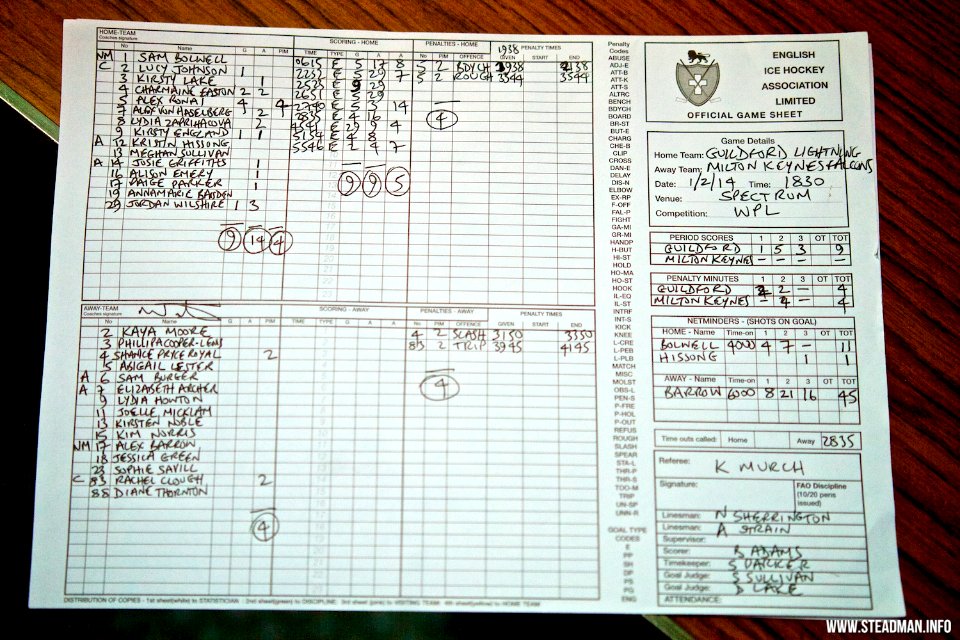 HOME-TEAM SCORING - HOME PENALTIES - HOME 1938 PENALTY TIMES
Coaches signature
No Name G A PIM TIME TYPE G A A No PIM OFFENCE GIVEN START END
NM 1 SAM BOLWELL 0615 E 5 17 8 5 2 BDYCH 1938 2138
C 2 LUCY JOHNSON 1 2 ROUGH 3344 3544
3 KIRSTY LAKE 1
4 CHARMAINE EASTON 2 2
5 ALEX RONAI 4 4 2749 E 5 3 14
7 ALEX VON HASELBERG 2 2835 E 4 16
8 LYDIA ZAPRIHACOVA 2
9 KIRSTY ENGLAND 1 1 5154 E 4 8
A 12 KRISTIN HISSONG 5546 E 2 4 7
13 MEGHAN SULLIVAN
A 14 JOSIE GRIFFITHS 1
16 ALISON EMERY 1
17 PAIGE PARKER 1
19 ANNAMARIE BAGDEN
29 JORDAN WILSHIRE 1 3
9 9 5
4
9 14 4
AWAY-TEAM SCORING - AWAY PENALTIES - AWAY PENALTY TIMES
Coaches signature
No Name G A PIM TIME TYPE G A A No PIM OFFENCE GIVEN START END
2 KAYA MOORE 4 2 SLASH 3150 3350
3 PHILLIPA COOPER-LENS 83 2 TRIP 3945 4145
4 SHANICE PRICE ROYAL 2
5 ABIGAIL LESTER
A 6 SAM BURGER
A 7 ELIZABETH ARCHER
9 LYDIA HOWTON
11 JOELLE MICKLAM
13 KIRSTEN NOBLE
15 KIM NORRIS
NM 17 ALEX BARROW
18 JESSICA GREEN
23 SOPHIE SAVILL
C 83 RACHEL CLOUGH 2
88 DIANE THORNTON
4
4
DISTRIBUTION OF COPIES - 1st sheet(white) to STATISTICIAN : 2nd sheet(green) to DISCIPLINE: 3rd sheet (pink) to VISITING TEAM: 4th sheet(yellow) to HOME TEAM
Penalty
Codes
ABUSE
ADJ-E
ATT-B
ATT-K
ATT-S
ALTRC
BENCH
BDYCH
BOARD
BR-ST
BUT-E
CHARG
CHE-B
CLIP
CROSS
DAN-E
DELAY
DIS-N
ELBOW
EX-RP
F-OFF
FAL-P
FIGHT
GA-MI
GR-MI
HANDP
H-BUT
HI-ST
HOLD
HO-MA
HO-ST
HOOK
IL-EQ
IL-ST
INTRF
INT-S
KICK
KNEE
L-CRE
L-PEB
L-PLB
MATCH
MISC
MOLST
OBS-L
PEN-S
P-FRE
P-HOL
P-OUT
REFUS
ROUGH
SLASH
SPEAR
STA-L
THR-P
THR-S
TOO-M
TRIP
UN-SP
UNN-R
GOAL TYPE
CODES
E
PP
SH
DP
PS
PG
ENG
ENGLISH
ICE HOCKEY
ASSOCIATION
LIMITED
OFFICIAL GAME SHEET
Game Details
Home Team: GUILDFORD LIGHTNING
Away Team: MILTON KEYNES FALCONS
Date: 1/2/14 Time: 1830
Venue: SPECTRUM
Competition: WPL
PERIOD SCORES 1 2 3 OT TOT
GUILDFORD 1 5 3 9
MILTON KEYNES - - - -
PENALTY MINUTES 1 2 3 OT TOT
GUILDFORD 2 2 - 4
MILTON KEYNES - 4 - 4
NETMINDERS - (SHOTS ON GOAL)
HOME - Name Time-on 1 2 3 OT TOT
BOLWELL 4000 4 7 - 11
HISSONG 1 1
AWAY - Name Time-on 1 2 3 OT TOT
BARROW 6000 8 21 16 45
Time outs called: Home Away 2835
Referee: K MURCH
Signature: FAO Discipline
(10/20 pens
issued)
Linesman: N SHERRINGTON
Linesman: A STRAIN
Supervisor:
Scorer: B ADAMS
Timekeeper: S PARKER
Goal Judge: S SULLIVAN
Goal Judge: D LAKE
ATTENDANCE:
WWW.STEADMAN.INFO